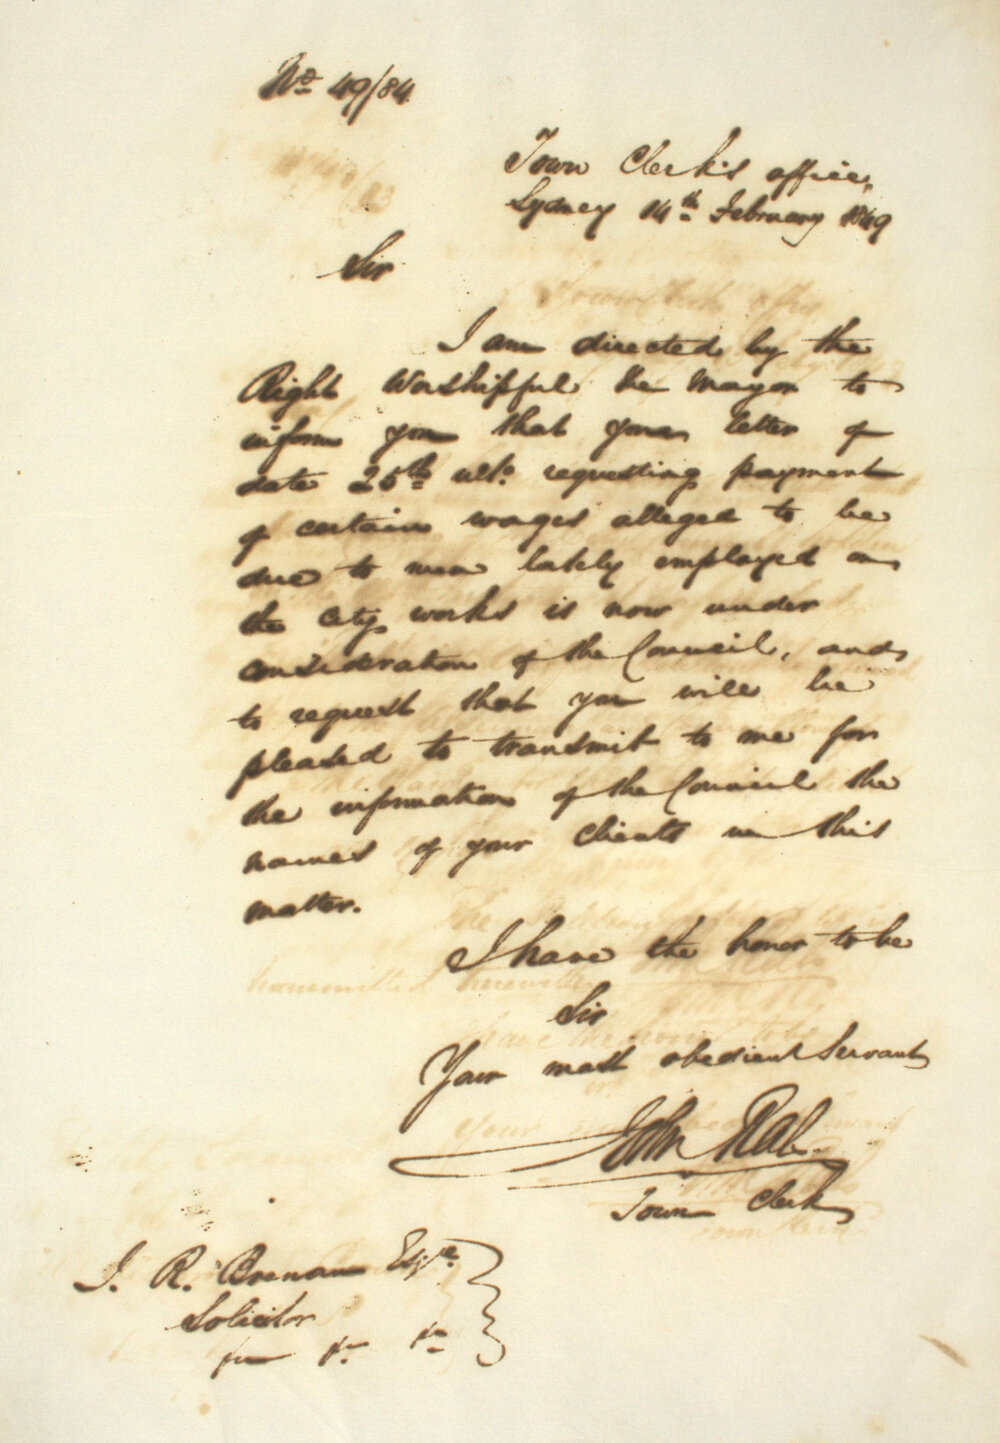 No 49/84.
Town Clerk's office,
Sydney 14th February 1849
Sir
I am directed by the
Right Worshipful the Mayor to
inform you that your letter of
date 25th ulto. requesting payment
of certain wages alleged to be
due to men lately employed on
the city works is now under
consideration of the Council, and
to request that you will be
pleased to transmit to me for
the information of the Council the
names of your clients in this
matter.
I have the honor to be
Sir
Your most obedient Servant
John Rae
Town Clerk
J. R. Brenan Esqre
Solicitor